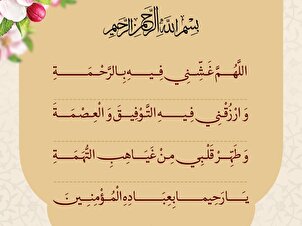 بسم الله الرحمن الرحیم
اللَّهُمَّ غَشِّنِي فِيهِ بِالرَّحْمَةِ
وَارْزُقْنِي فِيهِ التَّوْفِيقَ وَالْعِصْمَةَ
وَطَهِّرْ قَلْبِي مِنْ غَيَاهِبِ التُّهَمَةِ
يَا رَحِيما بِعِبَادِهِ الْمُؤْمِنِينَ